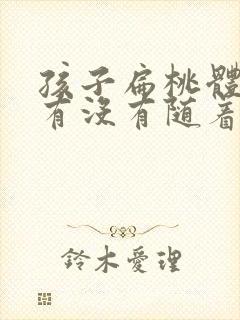 孩子扁桃體
有沒有随着
鈴木愛理